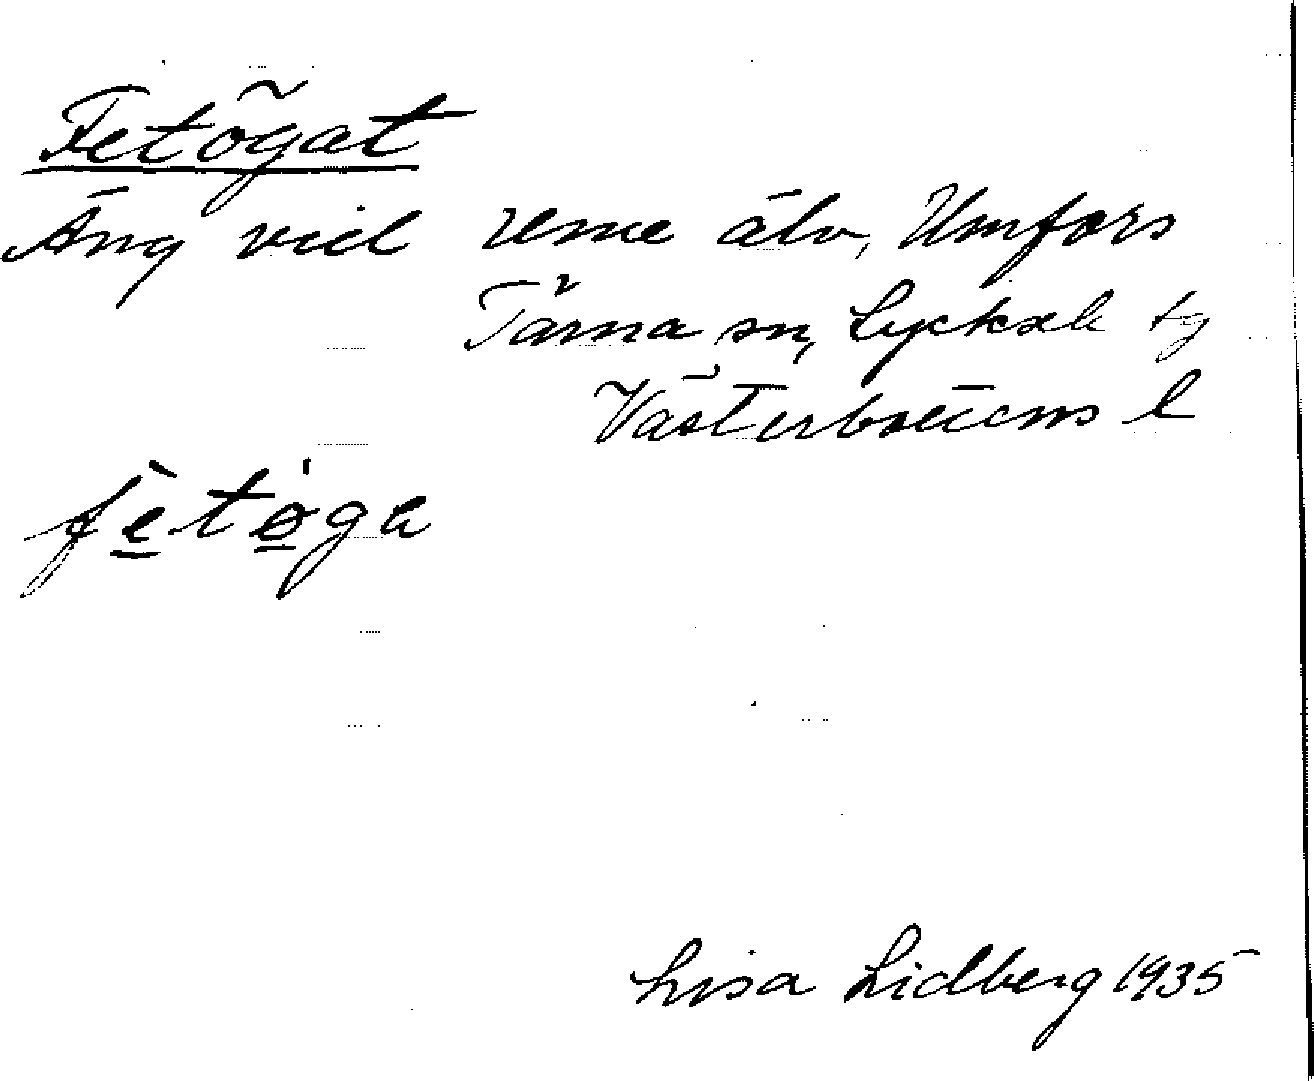 Fetögat
Äng vid Ume älv, Umfors
Tärna sn, Lycksele tg
Västerbottens l
fètø̀ga
Lisa Lidberg 1935